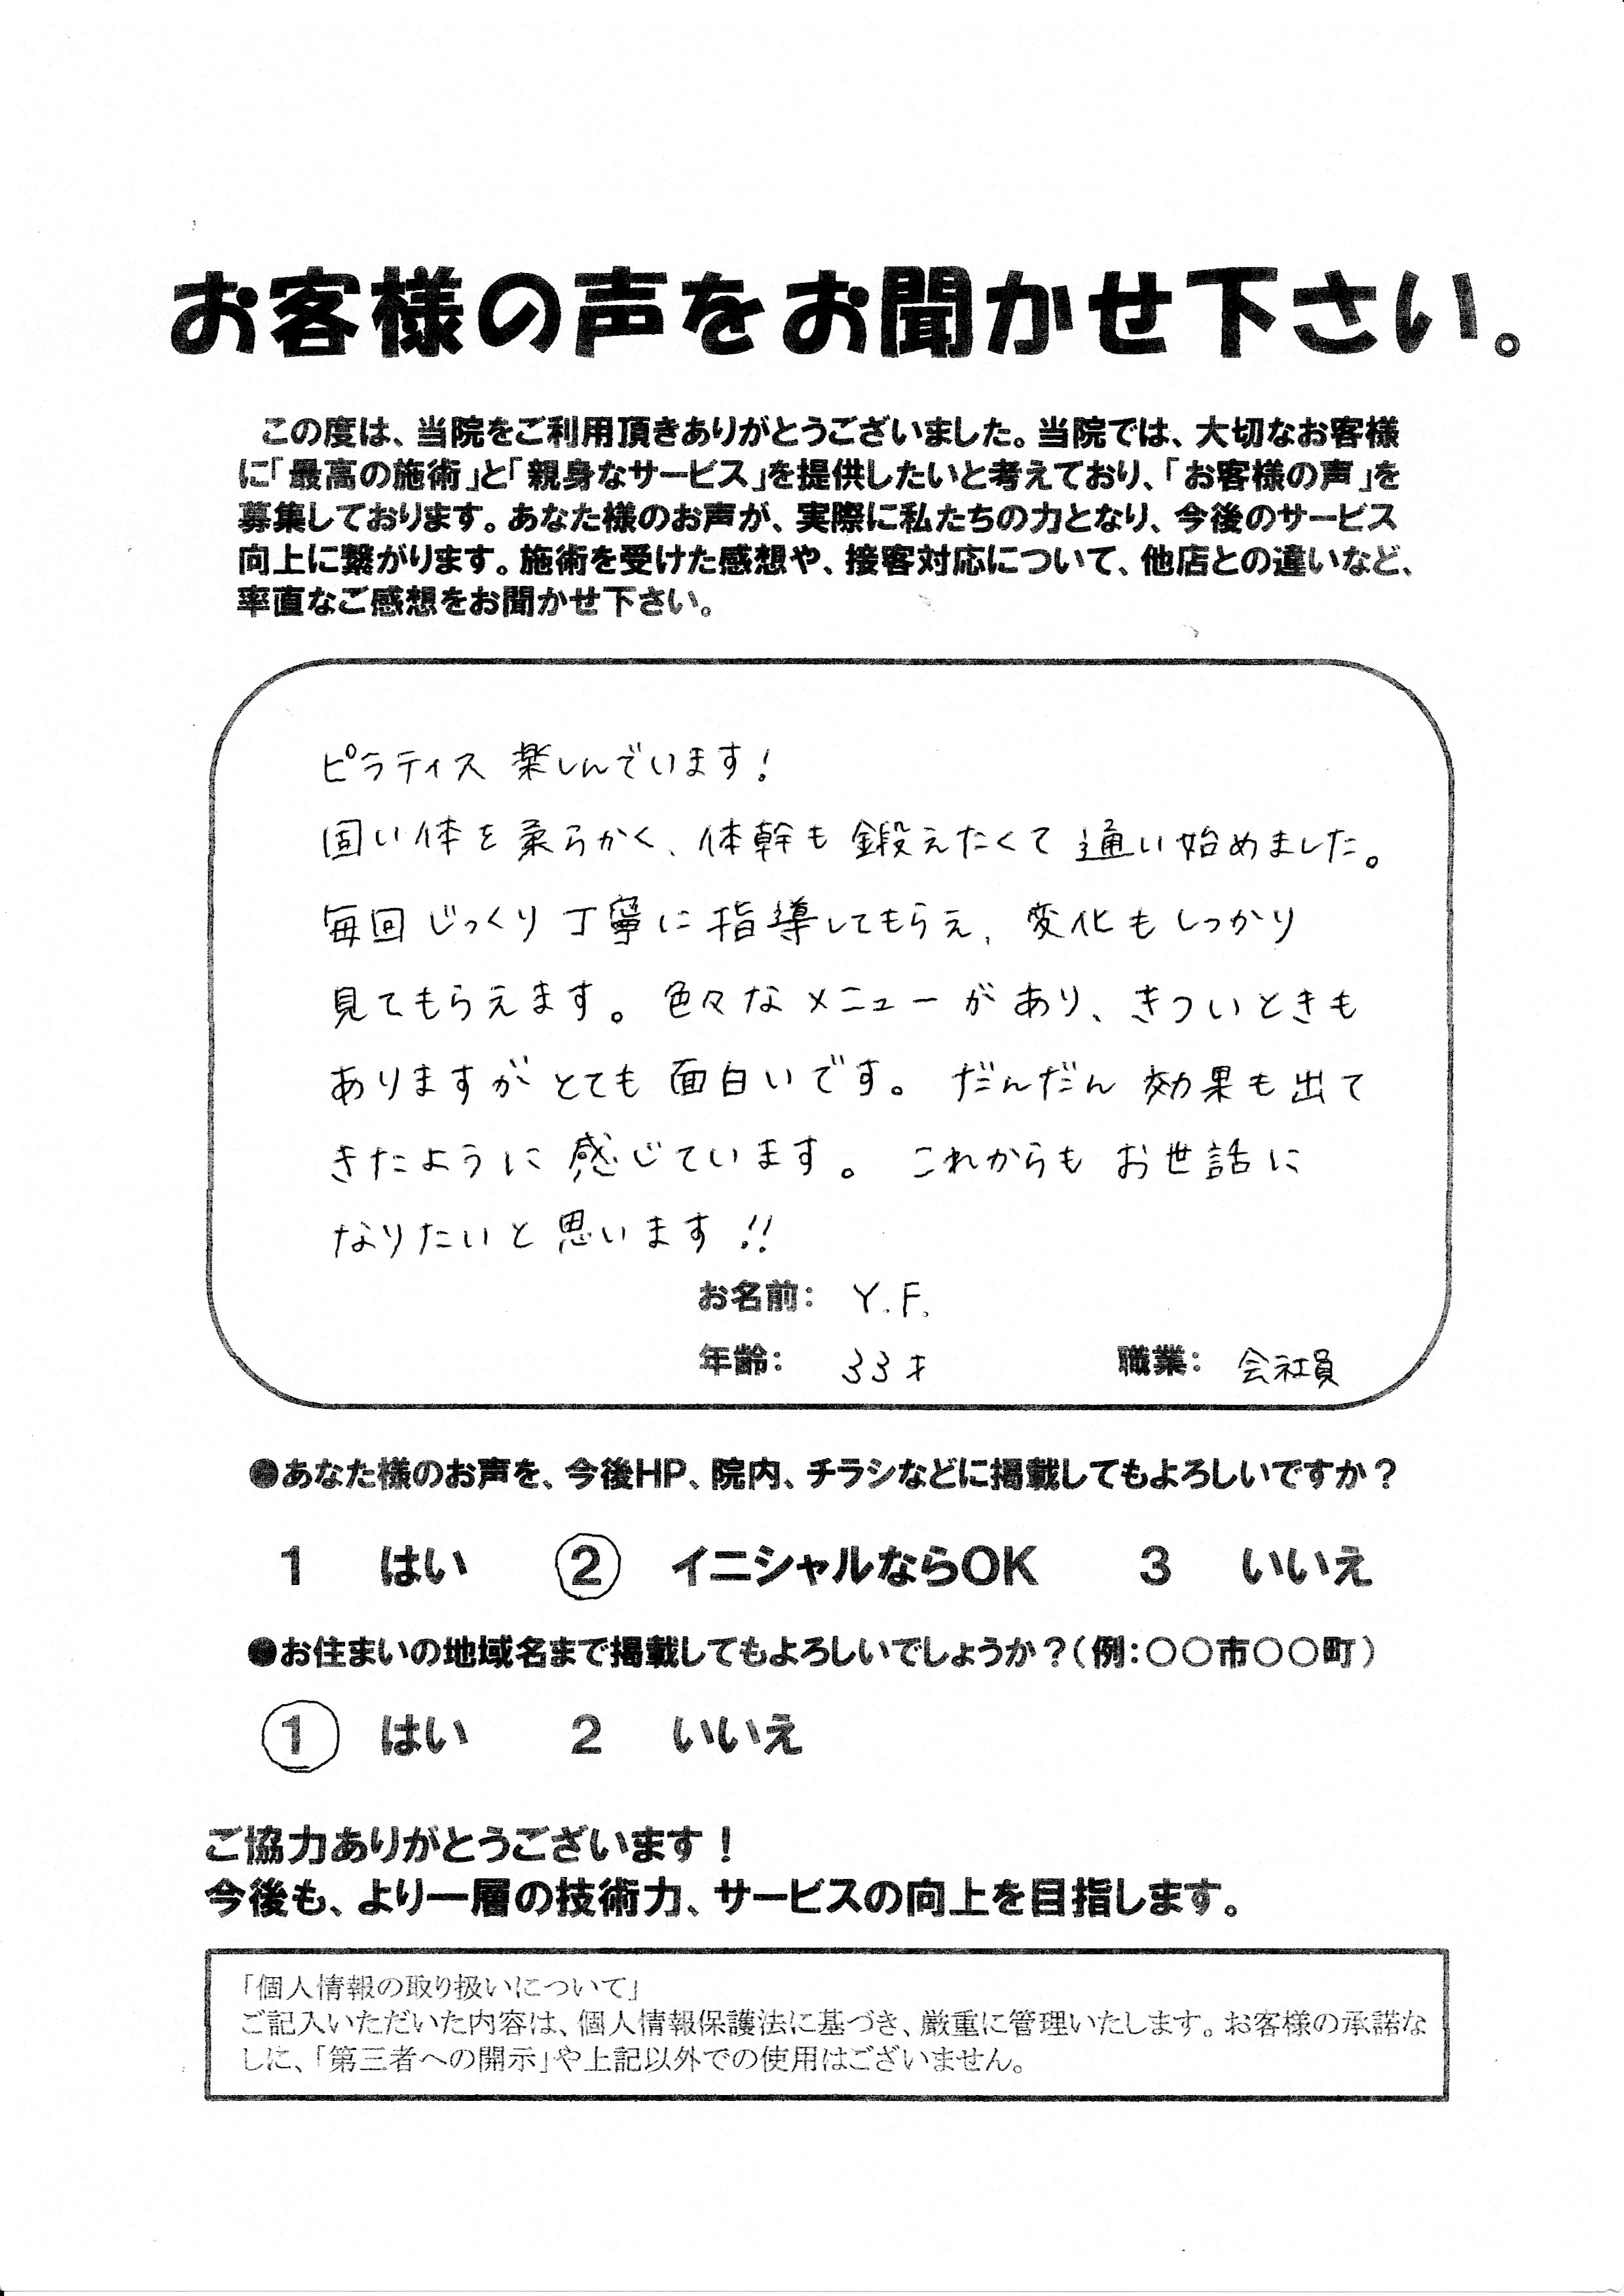 お客様の声をお聞かせ下さい。
この度は、当院をご利用頂きありがとうございました。当院では、大切なお客様
に「最高の施術」と「親身なサービス」を提供したいと考えており、「お客様の声」を
募集しております。あなた様のお声が、実際に私たちの力となり、今後のサービス
向上に繋がります。施術を受けた感想や、接客対応について、他店との違いなど、
率直なご感想をお聞かせ下さい。
ピラティス 楽しんでいます!
固い体を柔らかく、体幹も鍛えたくて通い始めました。
毎回じっくり丁寧に指導してもらえ、変化もしっかり
見てもらえます。色々なメニューがあり、きついときも
ありますがとても面白いです。だんだん効果も出て
きたように感じています。これからもお世話に
なりたいと思います!!
お名前: Y.F.
年齢: 33才 職業: 会社員
●あなた様のお声を、今後HP、院内、チラシなどに掲載してもよろしいですか?
1 はい ② イニシャルならOK 3 いいえ
●お住まいの地域名まで掲載してもよろしいでしょうか?(例:〇〇市〇〇町)
① はい 2 いいえ
ご協力ありがとうございます!
今後も、より一層の技術力、サービスの向上を目指します。
「個人情報の取り扱いについて」
ご記入いただいた内容は、個人情報保護法に基づき、厳重に管理いたします。お客様の承諾な
しに、「第三者への開示」や上記以外での使用はございません。